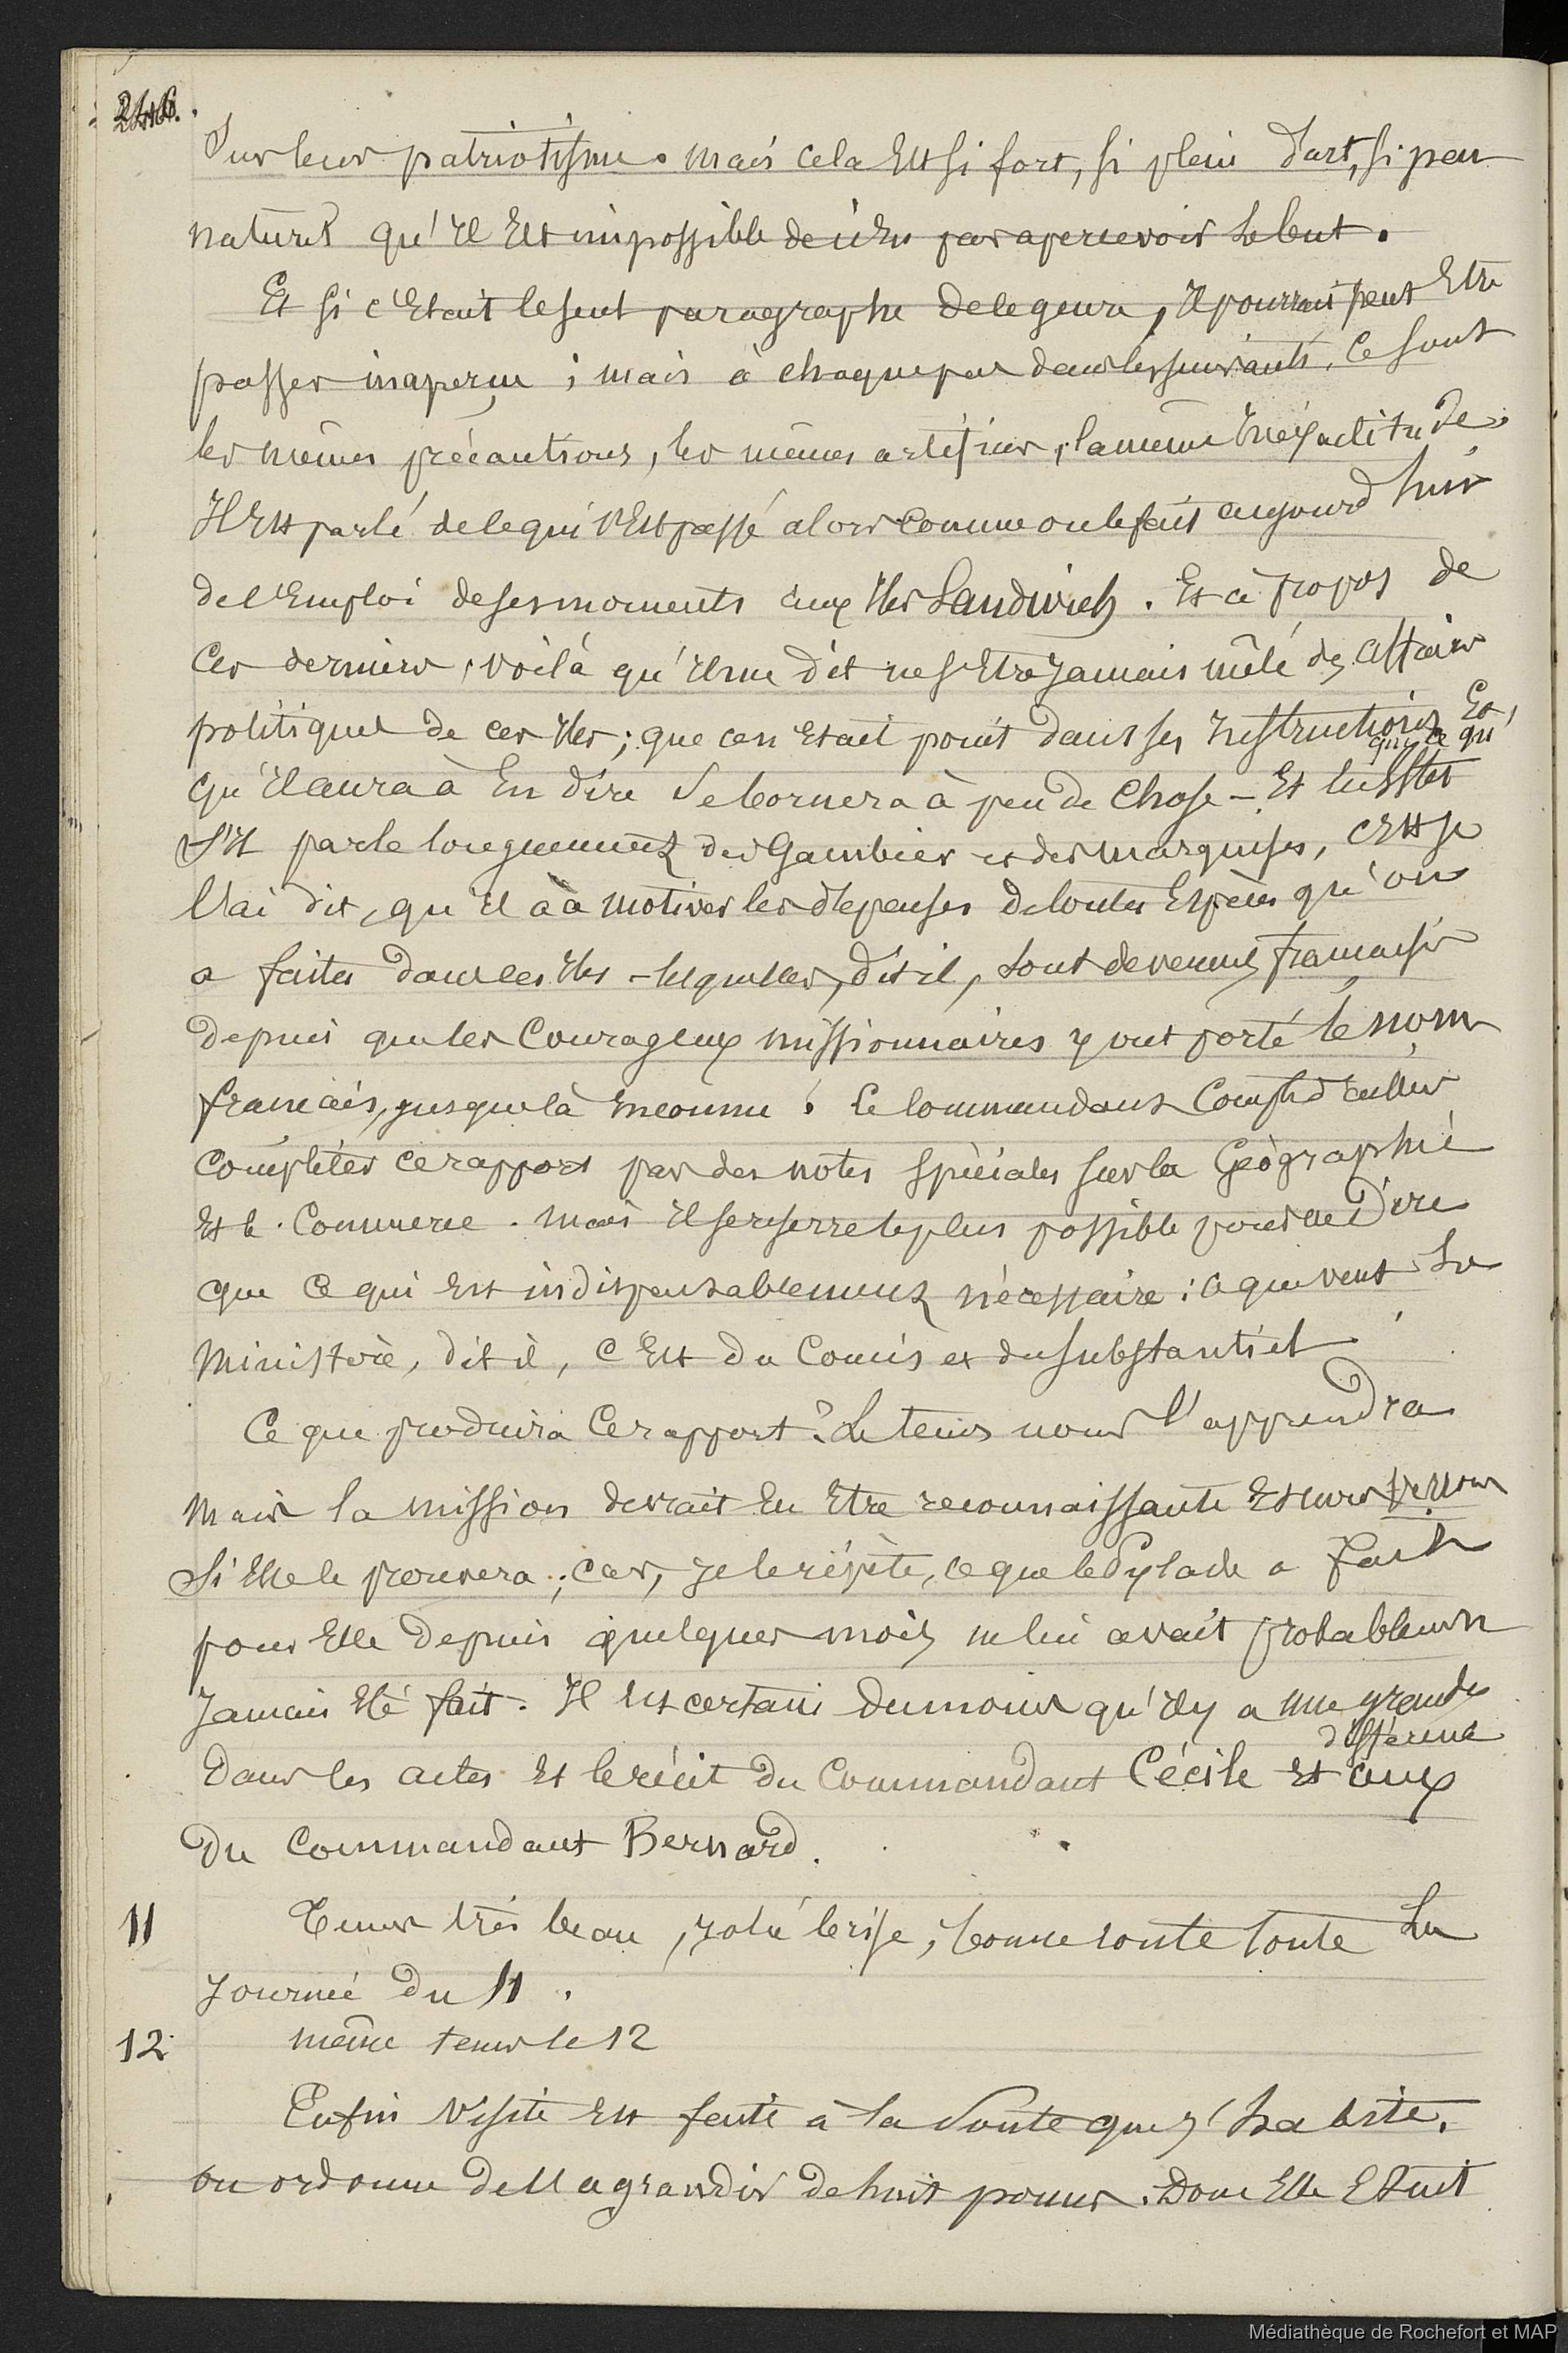 246.
Sur leur patriotisme. mais cela Est si fort, si plein d'art, si peu
naturel qu'il Est impossible de n'En pas apercevoir le but.
Et si c'Etait le seul paragraphe de ce genre, il pourrait peut Etre
passer inaperçu ; mais à chaque pas dans les suivants, ce sont
les mêmes précautions, les mêmes artifices, la même Inexactitude.
Il Est parlé de ce qui s'Est passé alors comme on le fait aujourd'hui
de l'Emploi de ses moments aux Iles Sandwich. Et à propos de
Ces dernières, voilà qu'il me dit ne s'Etre Jamais mêlé des affaires
politiques de ces Iles ; que ce n'Etait point dans ses Instructions Et,
que ce qu'
qu'il aura à En dire se bornera à peu de Chose — Et
S'Il parle longuement des Gambier et des Marquises, c'Est je
l'ai dit, qu'il a à motiver les dépenses de toutes Espèces qu'on
a faites dans ces Iles - lesquelles, dit il, sont devenues françaises
depuis que les Courageux missionnaires y ont porté le nom
français, jusque là Inconnu. Le Commandant Compte d'ailleurs
Compléter ce rapport par des notes spéciales sur la Géographie
Et le Commerce. Mais il se resserre le plus possible pour ne Dire
que ce qui Est indispensablement nécessaire : ce que veut le
Ministère, dit il, c'Est du Concis et du substantiel
Ce que produira Ce rapport ? Le tems nous l'apprendra
Mais la mission devrait En Etre reconnaissante Et nous verrons
Si Elle le prouvera ; car, Je le répète, ce que le Pylade a fait
pour Elle depuis quelques mois ne lui avait probablement
Jamais Eté fait. Il Est certain du moins qu'il y a une grande
différence
Dans les actes Et le récit du Commandant Cécile Et ceux
Du Commandant Bernard.
11 Tems très beau, jolie brise, bonne route toute la
Journée du 11.
12 même tems le 12
Enfin visite Est faite à la soute que j'habite.
on ordonne de l'agrandir de huit pouces. Donc Elle Etait
Médiathèque de Rochefort et MAP